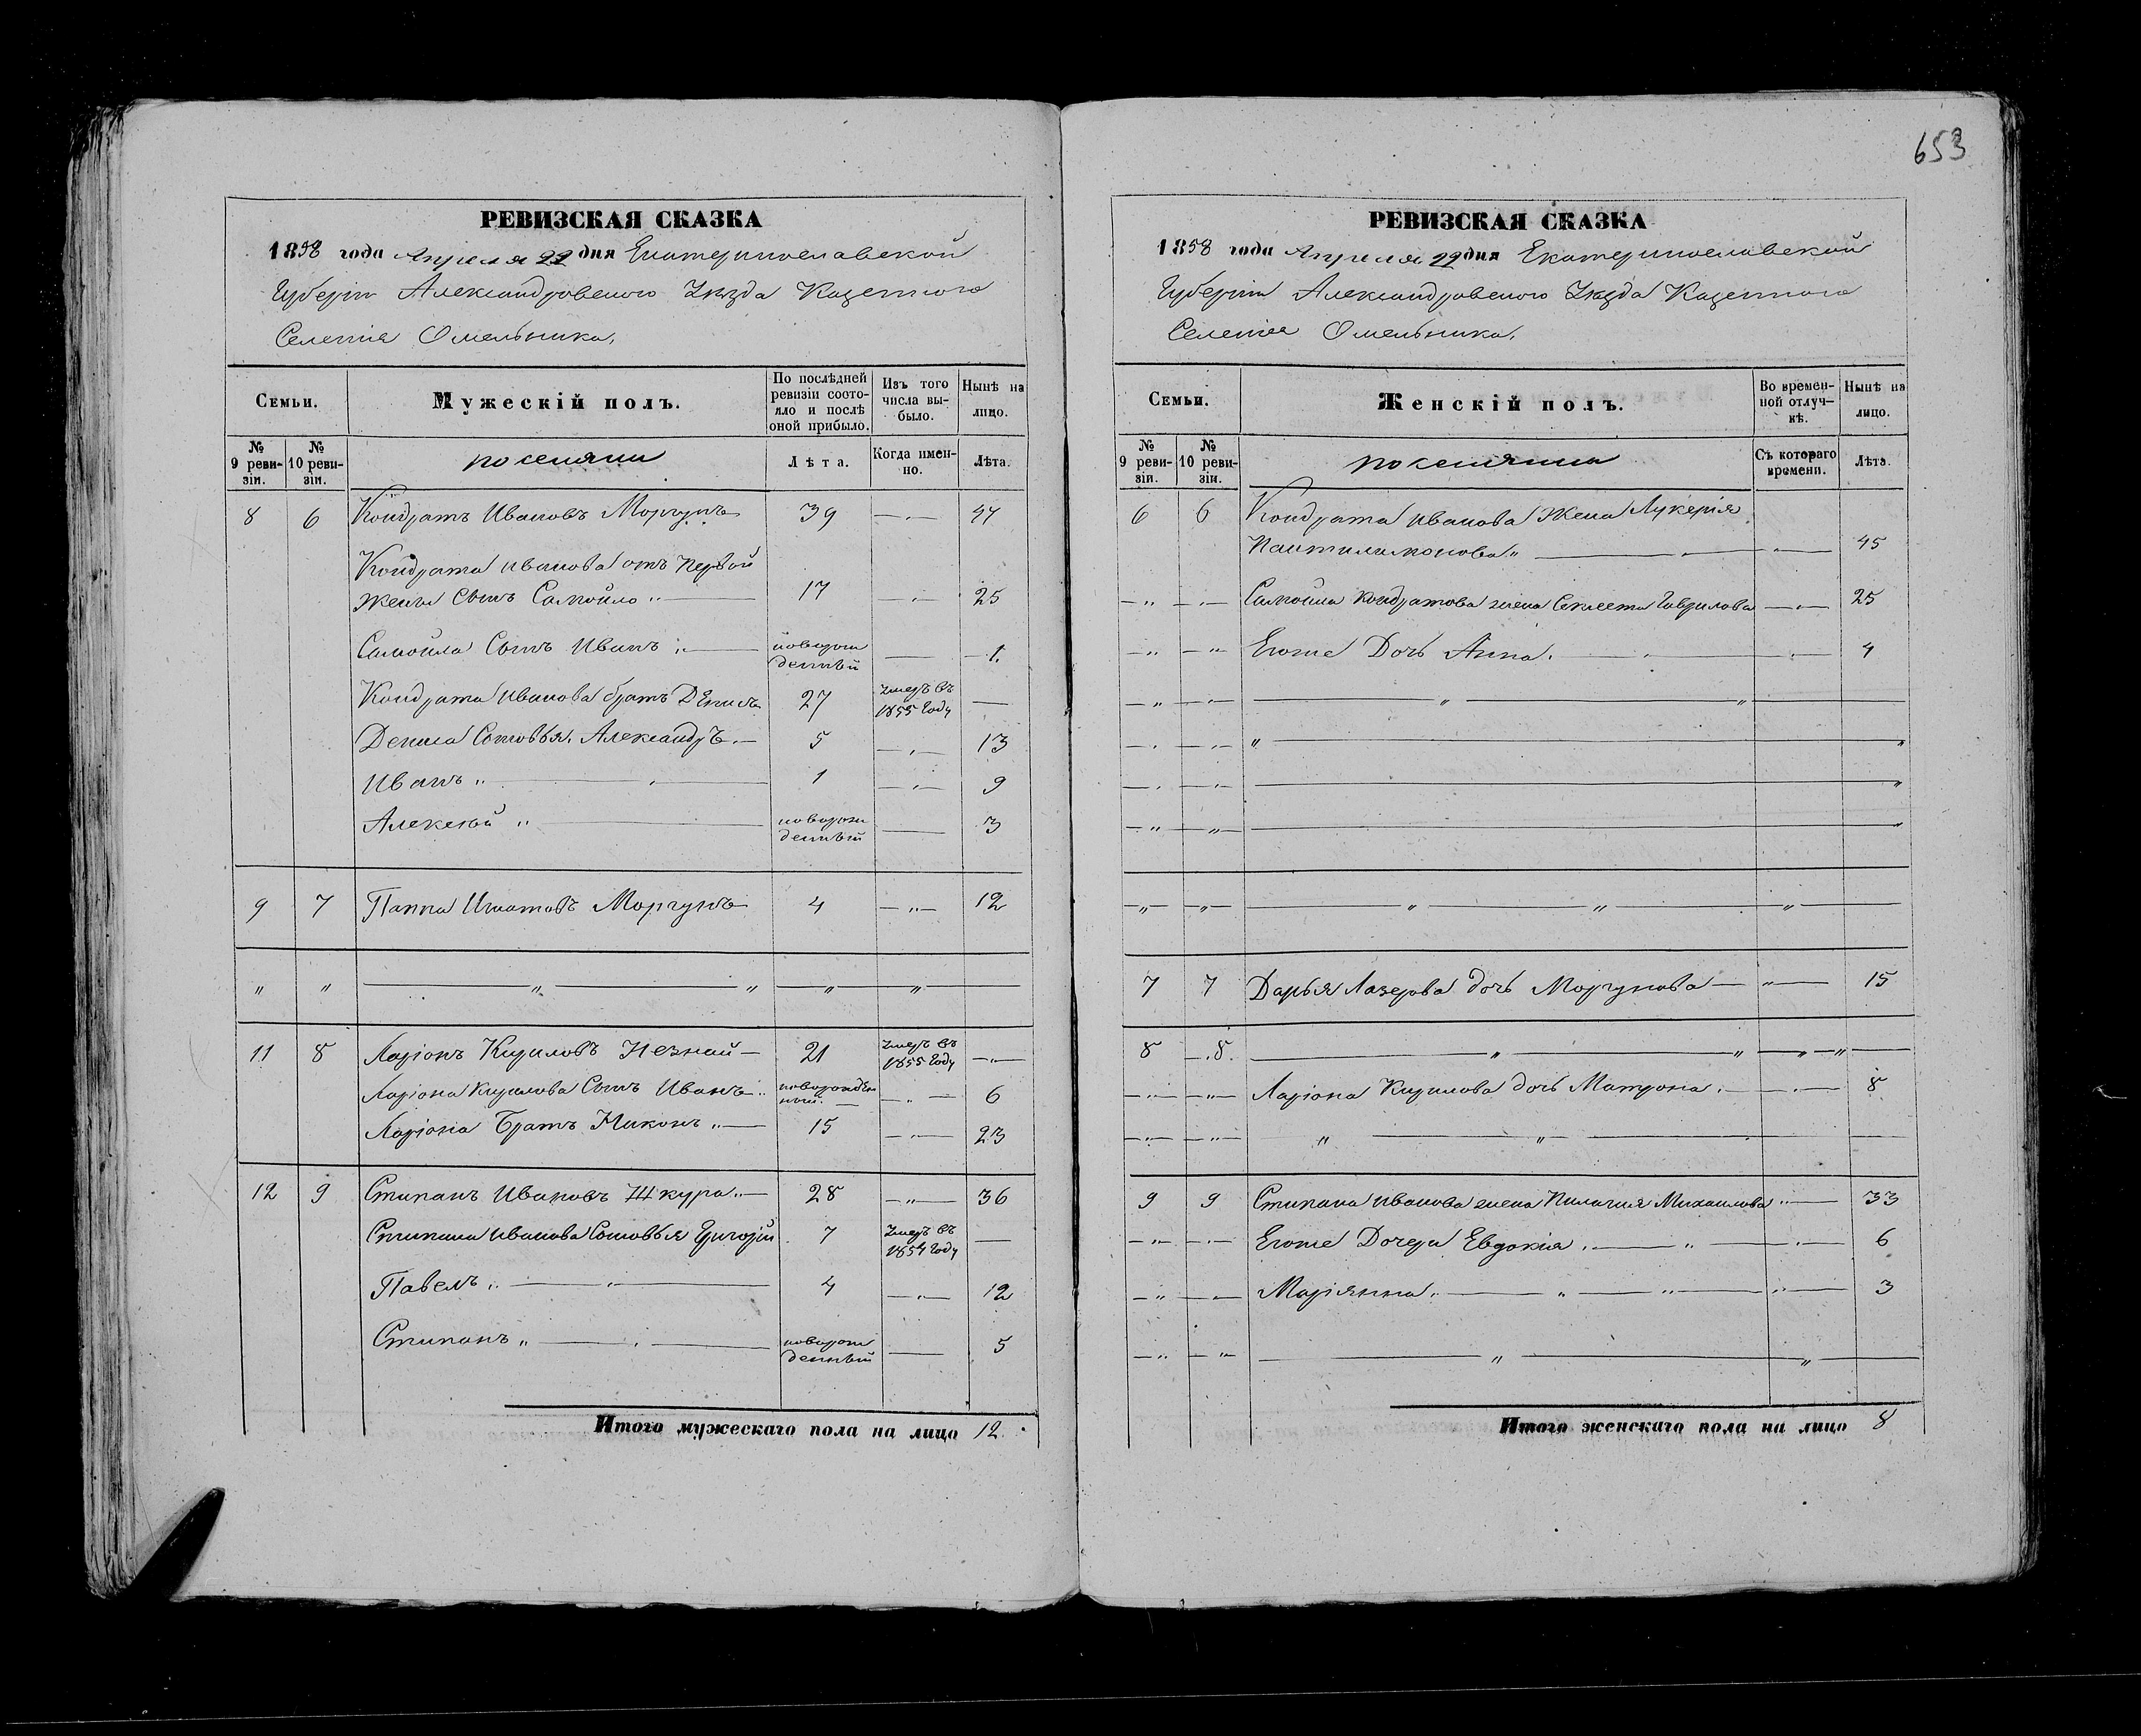 653
РЕВИЗСКАЯ СКАЗКА
1858 года Апреля 22 дня Екатеринославской
Губерніи Александровского Уѣзда Казенного
Селенія Омельника.
Семьи.
Мужескій полъ.
По послѣдней ревизіи состояло и послѣ оной прибыло.
Изъ того числа выбыло.
Нынѣ на лицо.
№ 9 ревизіи.
№ 10 ревизіи.
поселяни
Лѣта.
Когда именно.
Лѣта.
8 6 Кондратъ Ивановъ Моргунъ 39 —„— 47
Кондрата Иванова отъ первой
жены Сынъ Самойло „ — 17 —„— 25
Самойла Сынъ Иванъ „ — новорожденный — 1.
Кондрата Иванова братъ Денисъ 27 Умеръ въ 1855 Году —
Дениса Сыновья, Александръ. — 5 —„— 13
Иванъ „ — 1 —„— 9
Алексѣй „ — новорожденный — 3
9 7 Паппа Игнатовъ Моргунъ 4 —„— 12
„ „ — „ — „ — „ — „ —
11 8 Ларіонъ Кириловъ Незнай — 21 Умеръ въ 1855 Году —„—
Ларіона Кирилова Сынъ Иванъ „ новорожденный. — —„— 6
Ларіона Братъ Никонъ „ — 15 —„— 23
12 9 Стипанъ Ивановъ Шкура „ — 28 —„— 36
Стипана Иванова Сыновья Григорій 7 Умеръ въ 1854 Году —
Павелъ „ — „ — 4 —„— 12
Стипанъ „ — „ — новорожденный — 5
Итого мужескаго пола на лицо 12.
РЕВИЗСКАЯ СКАЗКА
1858 года Апреля 22 дня Екатеринославской
Губерніи Александровского Уѣзда Казенного
Селенія Омельника.
Семьи.
Женскій полъ.
Во временной отлучкѣ.
Нынѣ на лицо.
№ 9 ревизіи.
№ 10 ревизіи.
поселянки
Съ котораго времени.
Лѣта.
6 6 Кондрата Иванова Жена Лукерія
Пантилимонова „ — „ — 45
—„— —„— Самойла Кондратова жена Секлета Гаврилова —„— 25
—„— —„— Егоже Дочь Анна. — „ — 4
—„— —„— — „ — „ —
—„— —„— „ — „
—„— —„— — „
—„— —„— — „
—„— —„— — „ — „ — „ —
7 7 Дарья Лазерова дочь Моргунова — „ — 15
8 —„8. — „ — „ — „ — „ —
—„— —„— Ларіона Кирилова дочь Матрона. — „ — 8
—„— —„— „ — „ —
9 9 Стипана Иванова жена Пилагия Михаилова „ — 33
—„— —„— Егоже Дочери Евдокия. — „ — „ — 6
—„— —„— Маріянна „ — „ — „ — „ — 3
—„— —„— — „ — „ —
Итого женскаго пола на лицо 8